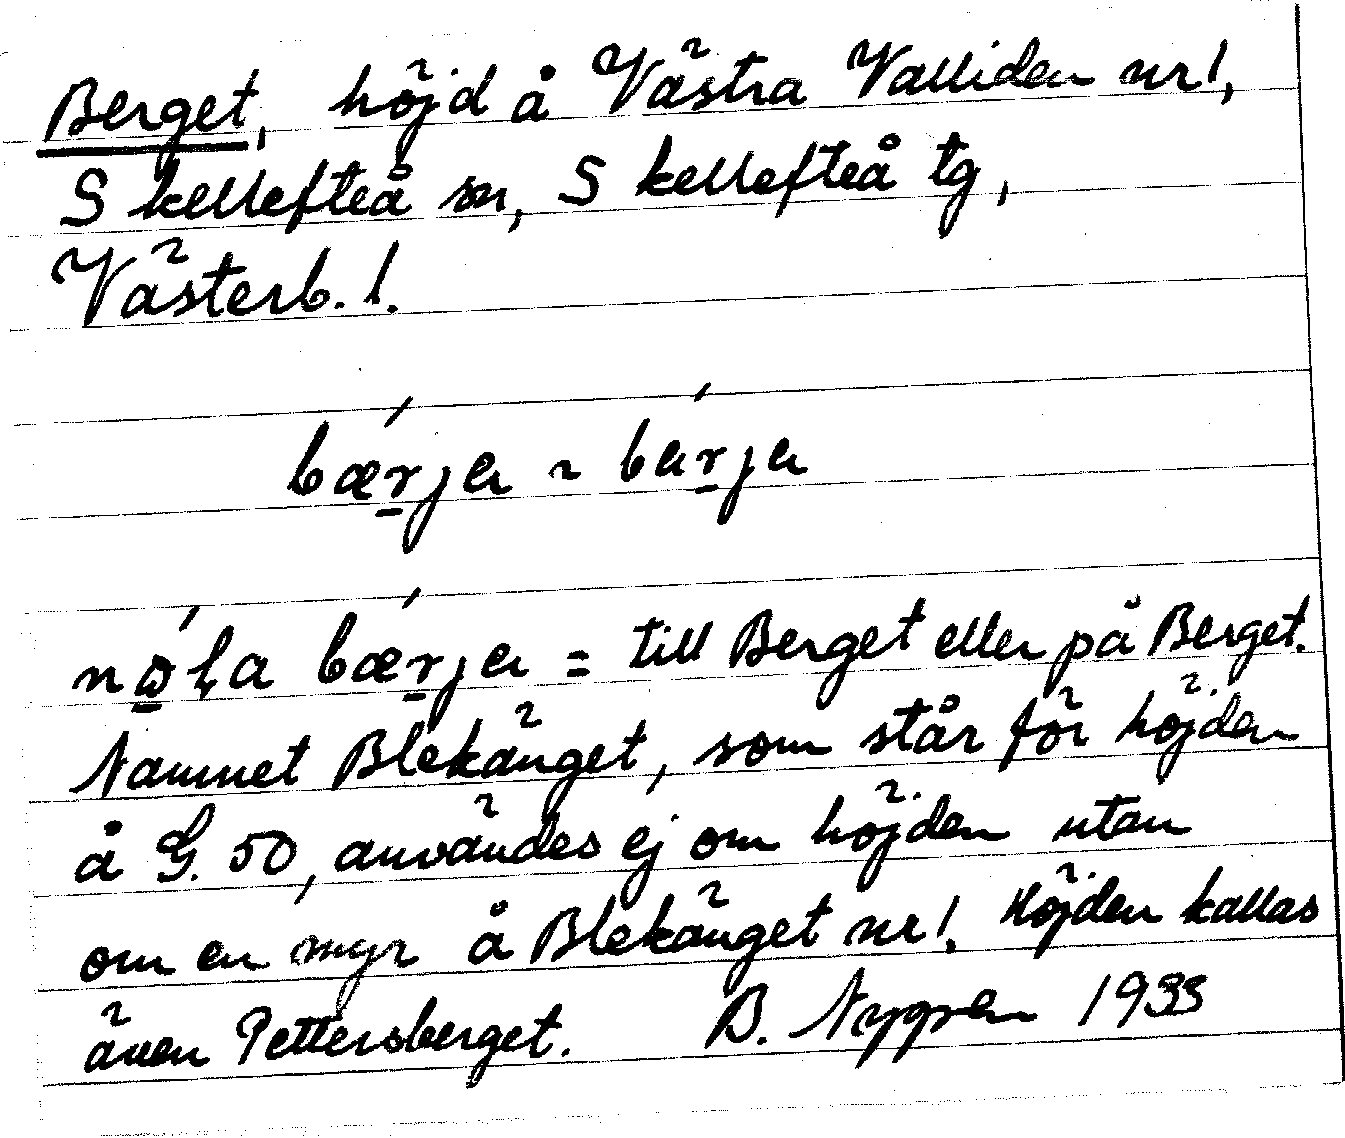 Berget, höjd å Västra Valliden nr 1,
Skellefteå sn, Skellefteå tg,
Västerb. l.
bǽr̠ja ~ bár̠ja
till Berget eller på Berget.
Namnet Blekänget, som står för höjden
å G. 50, användes ej om höjden utan
om en myr å Blekänget nr 1. Höjden kallas
även Pettersberget. B. Nygren 1933